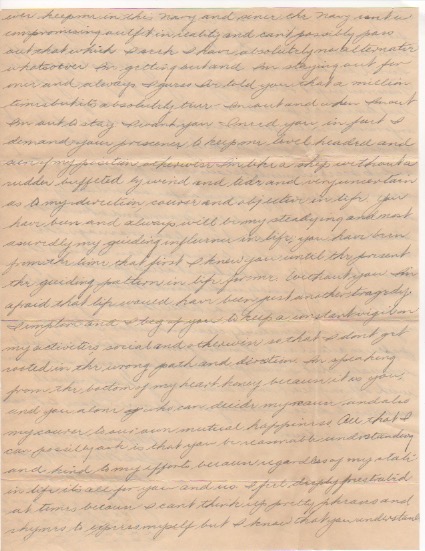 ever keep me in the Navy and since the Navy isn't a
compromising outfit in reality and can't possibly pass
out that which I seek I have absolutely no alternative
whatsoever I'm getting out and I'm staying out for
once and always I guess I've told you that a million
times but its absolutely true - I'm out and when I'm out
I'm out to stay I want you - I need you, in fact I
demand your presence to keep me level headed and
of my position otherwise I'm like a ship without a
rudder buffeted by wind and tide and very uncertain
as to my direction course and objective in life. You
have been and always will be my steadying and most
assuredly my guiding influence in life, you have been
from the time that first I knew you until the present
the guiding pattern in life for me. Without you I'm
afraid that life would have been just another tragedy
I implore and I beg of you to keep a constant vigil on
my activities social and otherwise so that I don't get
rooted in the wrong path and direction I'm speaking
from the bottom of my heart honey because it is you,
and you alone who can decide my and also
my course to our own mutual happiness All that I
can possibly ask is that you be reasonable understanding
and kind to my efforts because regardless of my state
in life its all for you and us I feel deeply frustrated
at times because I can't think up pretty phrases and
rhymes to express myself but I know that you understand